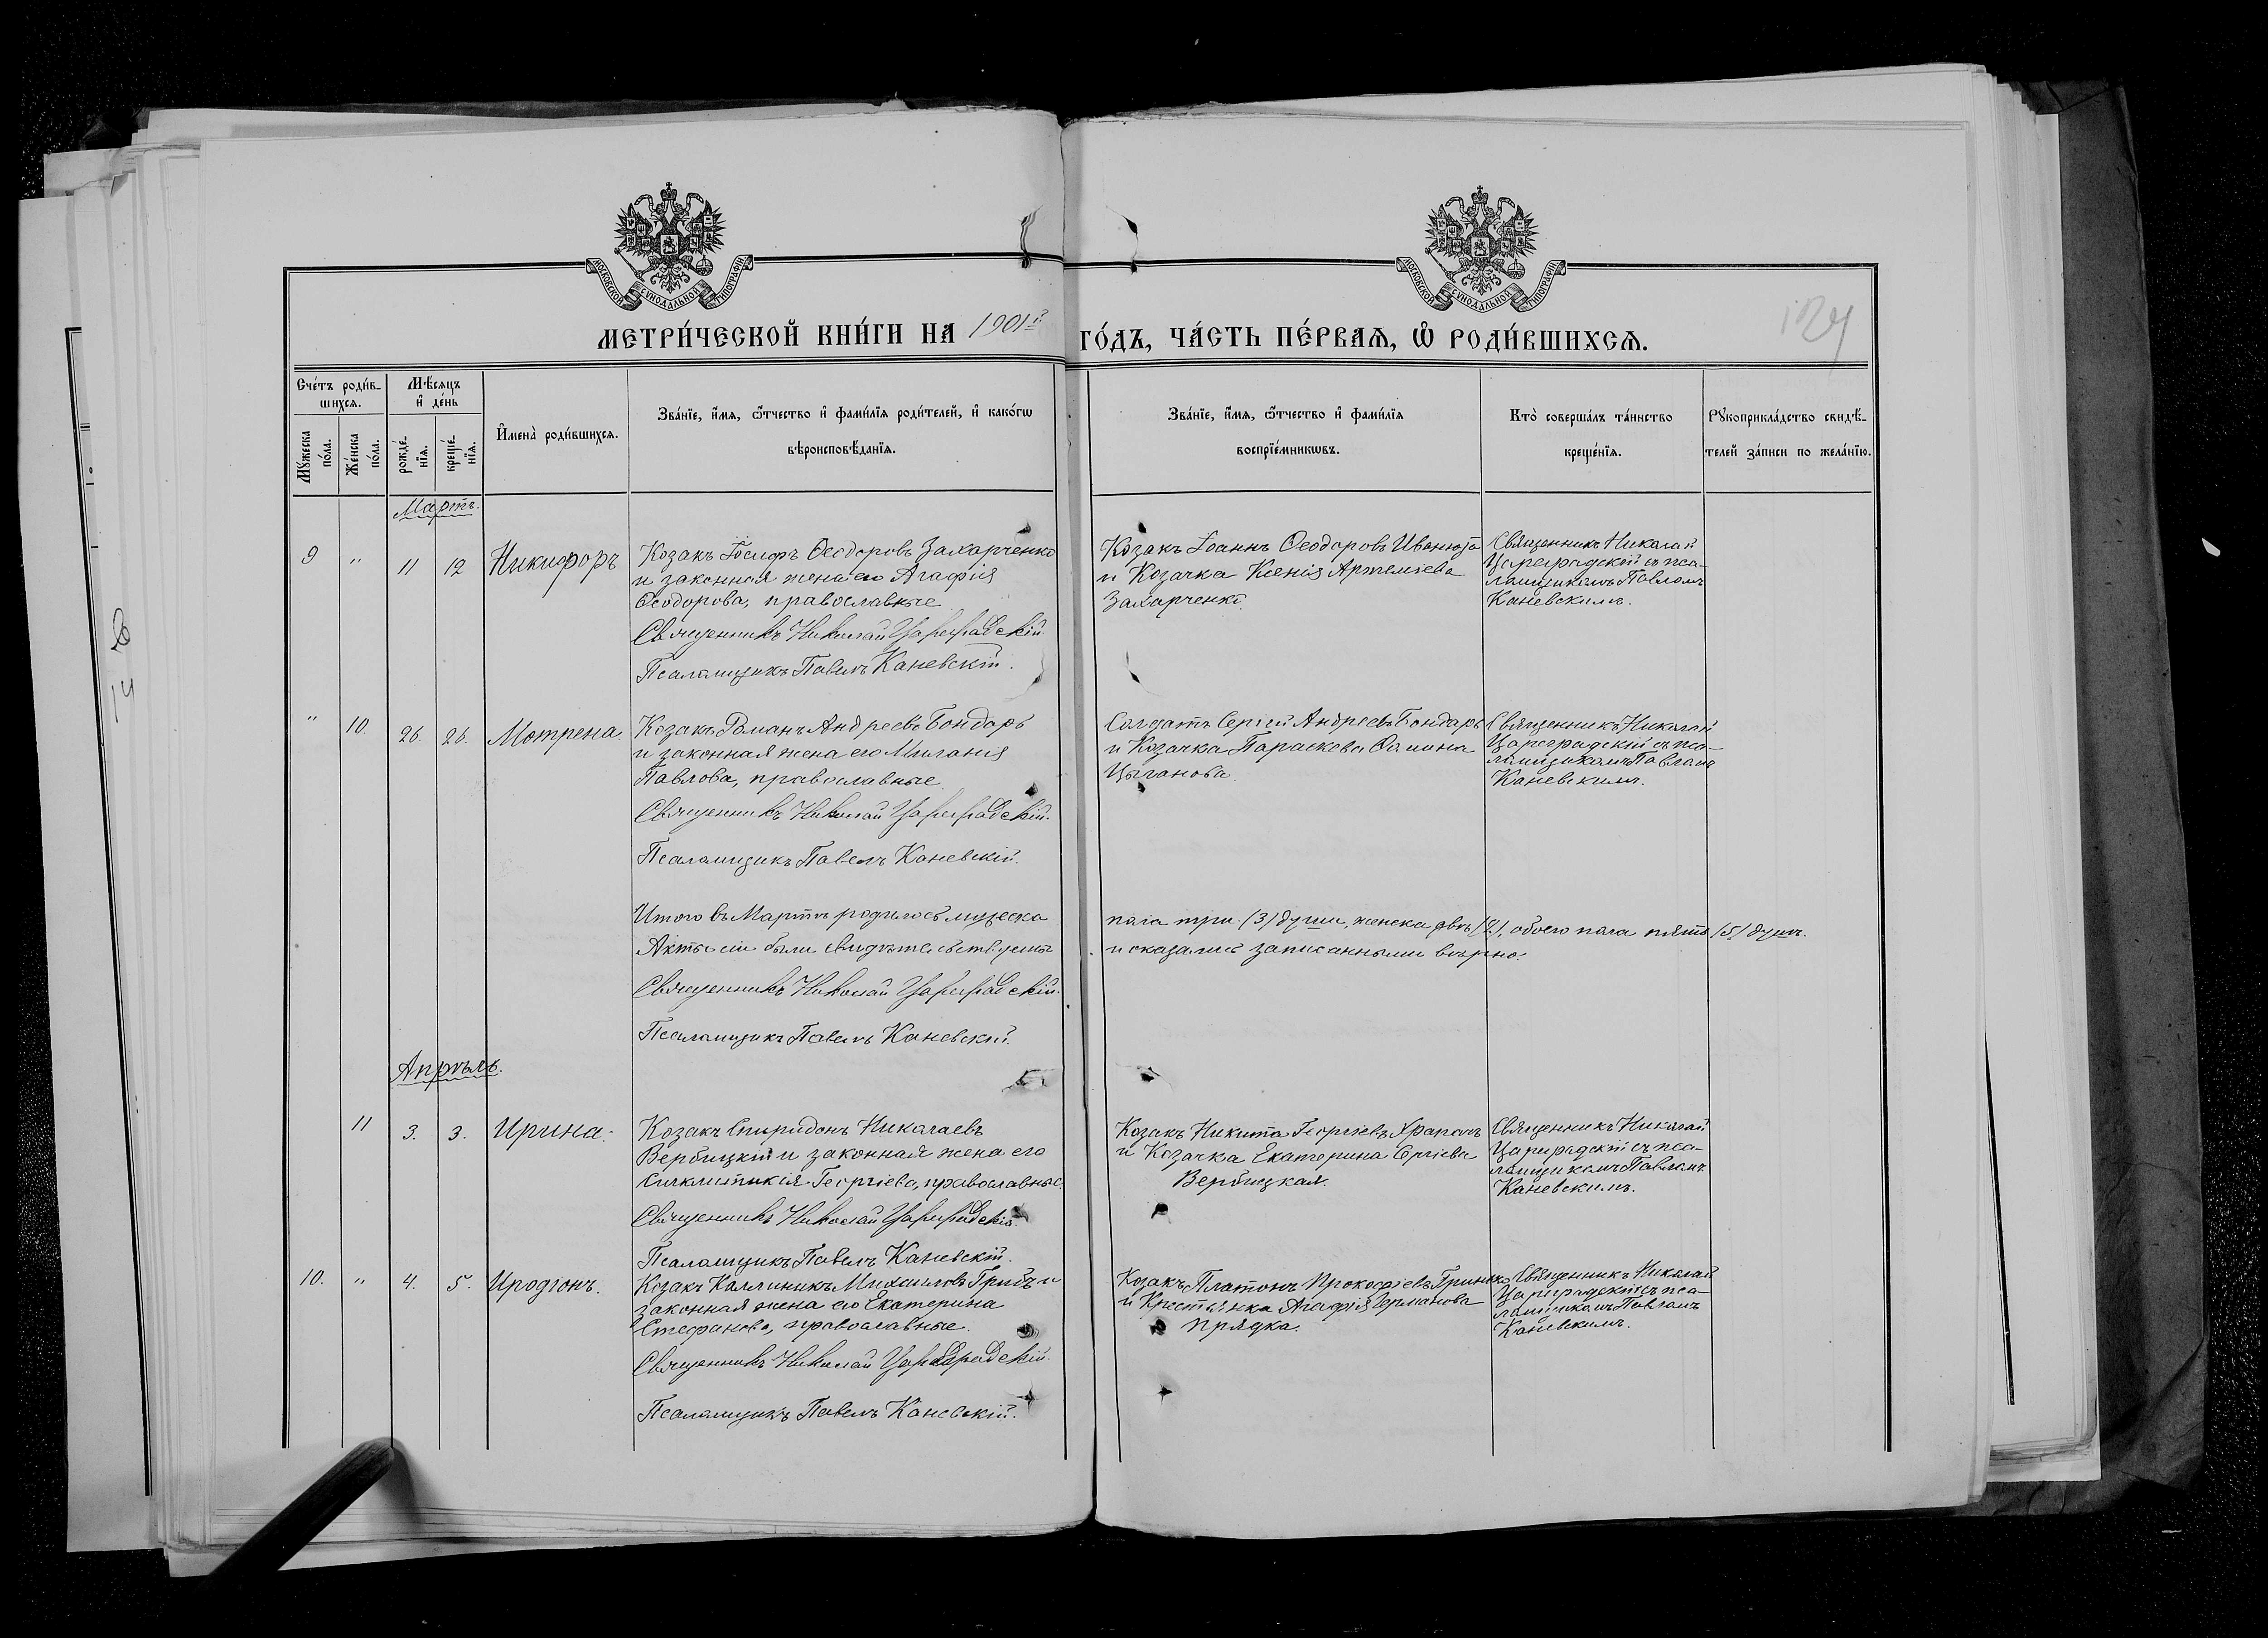 МОСКОВСКОЙ СѴНОДАЛЬНОЙ ТИПОГРАФІИ
МОСКОВСКОЙ СѴНОДАЛЬНОЙ ТИПОГРАФІИ
МЕТРИ́ЧЕСКОЙ КНИ́ГИ НА 1901й ГО́ДЪ, ЧА́СТЬ ПЕ́РВАѦ, Ѡ҆ РОДИ́ВШИХСѦ.
124
Сче́тъ роди́в-
шихсѧ.
Мꙋ́жеска по́ла.
Же́нска по́ла.
Мѣ́сѧцъ
и҆ де́нь
рожде́-
нїѧ.
креще́-
нїѧ.
И҆мена̀ роди́вшихсѧ.
Зва́нїе, и҆́мѧ, ѻ҆́тчество и҆ фами́лїѧ роди́телей, и҆ како́гѡ
вѣроисповѣ́данїѧ.
Зва́нїе, и҆́мѧ, ѻ҆́тчество и҆ фами́лїѧ
воспрїе́мникѡвъ.
Кто̀ соверша́лъ та́инство
креще́нїѧ.
Рꙋкоприкла́дство свидѣ́-
телей за́писи по жела́нїю.
Мартъ.
9 " 11 12 Никифоръ
Козакъ Іосифъ Ѳеодоровъ Захарченко
и законная жена его Агафія
Ѳеодорова, православные
Священникъ Николай Цареградскій
Псаломщикъ Павелъ Каневскій.
Козакъ Іоаннъ Ѳеодоровъ Иванюта
и Козачка Ксенія Артеміева
Захарченко.
Священникъ Николай
Цареградскій съ пса-
ломщикомъ Павломъ
Каневскимъ.
" 10. 26. 26. Мотрена.
Козакъ Романъ Андреевъ Бондарь
и законная жена его Миланія
Павлова, православные.
Священникъ Николай Цареградскій.
Псаломщикъ Павелъ Каневскій.
Солдатъ Сергій Андреевъ Бондарь
и Козачка Параскева Ѳомина
Цыганова.
Священникъ Николай
Цареградскій съ пса-
ломщикомъ Павломъ
Каневскимъ.
Итого въ Мартѣ родилось мужеска пола три (3) души, женска двѣ (2), обоего пола пять (5) душъ.
Акты сіи были свидѣтельствуемы и оказались записанными вѣрно.
Священникъ Николай Цареградскій.
Псаломщикъ Павелъ Каневскій.
Апрѣль.
11 3. 3. Ирина.
Козакъ Спиридонъ Николаевъ
Вербицкій и законная жена его
Сигклитикія Георгіева, православные.
Священникъ Николай Цареградскій.
Псаломщикъ Павелъ Каневскій.
Козакъ Никита Георгіевъ Храпачъ
и Козачка Екатерина Сергіева
Вербицкая.
Священникъ Николай
Цареградскій съ пса-
ломщикомъ Павломъ
Каневскимъ.
10. " 4. 5. Иродіонъ.
Козакъ Каллиникъ Михаиловъ Грибъ и
законная жена его Екатерина
Стефанова, православные.
Священникъ Николай Цареградскій.
Псаломщикъ Павелъ Каневскій.
Козакъ Платонъ Прокофіевъ Гринько
и Крестьянка Агафія Германова
Прядка.
Священникъ Николай
Цареградскій съ пса-
ломщикомъ Павломъ
Каневскимъ.